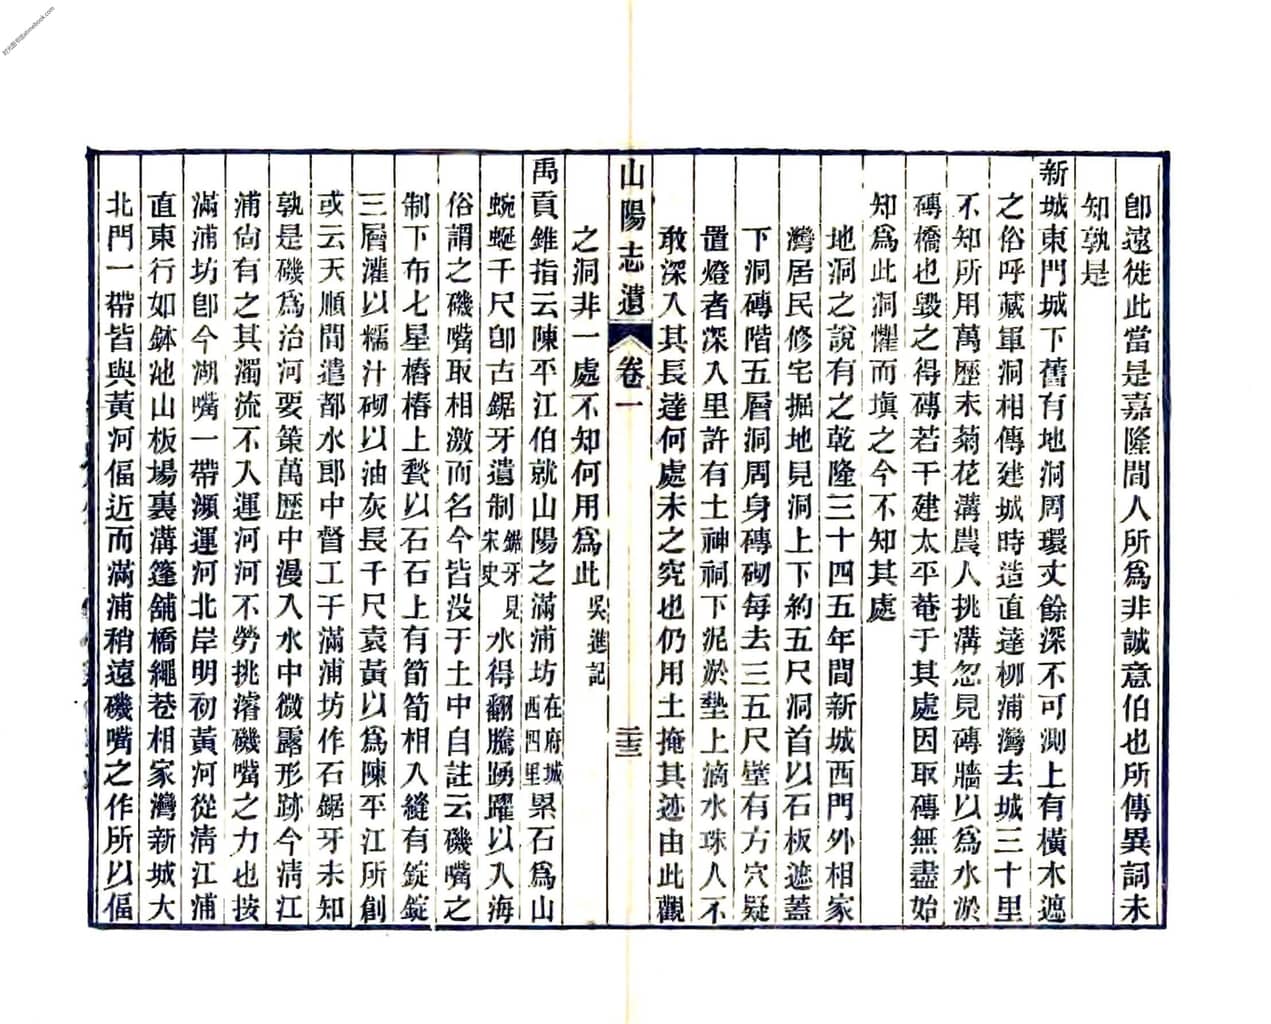 卽遠徙此當是嘉隆間人所爲非誠意伯也所傳異詞未
知孰是
新城東門城下舊有地洞周環丈餘深不可測上有橫木遮
之俗呼藏軍洞相傳建城時造直達柳浦灣去城三十里
不知所用萬歷末菊花溝農人挑溝忽見磚牆以爲水淤
磚橋也毀之得磚若干建太平菴于其處因取磚無盡始
知爲此洞懼而塡之今不知其處
地洞之說有之乾隆三十四五年間新城西門外相家
灣居民修宅掘地見洞上下約五尺洞首以石板遮蓋
下洞磚階五層洞周身磚砌每去三五尺壁有方穴疑
置燈者深入里許有土神祠下泥淤墊上滴水珠人不
敢深入其長達何處未之究也仍用土掩其迹由此觀
之洞非一處不知何用爲此吳進記
山陽志遺 卷一 二十三
禹貢錐指云陳平江伯就山陽之滿浦坊在府城西四里累石爲山
蜿蜒千尺卽古鋸牙遺制鋸牙見宋史水得翻騰踴躍以入海
俗謂之磯嘴取相激而名今皆沒于土中自註云磯嘴之
制下布七星樁樁上甃以石石上有筍筍相入縫有錠錠
三層灌以糯汁砌以油灰長千尺袁黃以爲陳平江所創
或云天順間遣都水郎中督工于滿浦坊作石鋸牙未知
孰是磯爲治河要策萬歷中漫入水中微露形跡今淸江
浦尙有之其濁流不入運河河不勞挑濬磯嘴之力也按
滿浦坊卽今湖嘴一帶瀕運河北岸明初黃河從淸江浦
直東行如鉢池山板場裏溝篷舖橋繩巷相家灣新城大
北門一帶皆與黃河偪近而滿浦稍遠磯嘴之作所以偪